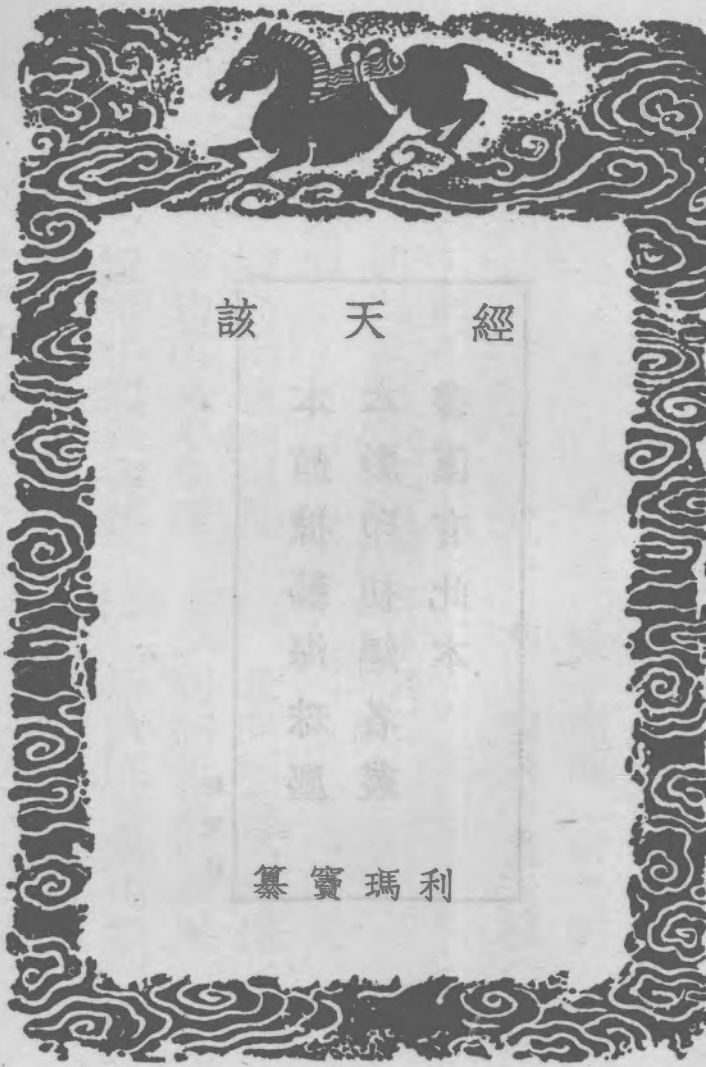 經天該
利瑪竇纂